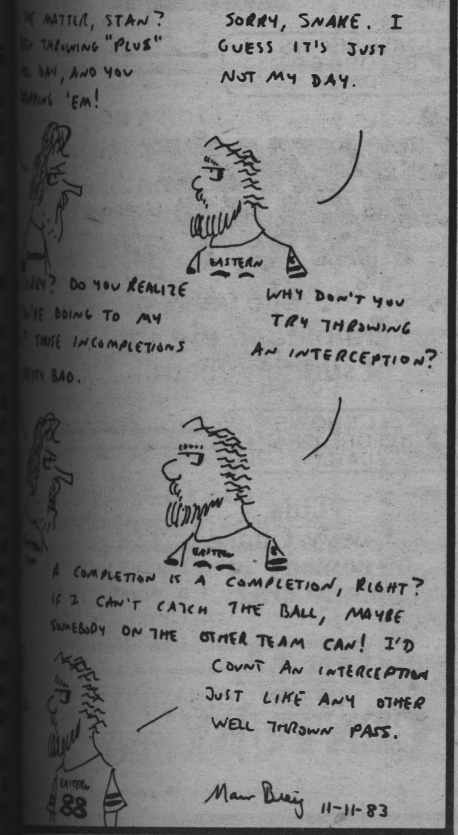 MATTER, STAN?
THROWING "PLUS"
DAY, AND YOU
'EM!
SORRY, SNAKE. I
GUESS IT'S JUST
NOT MY DAY.
EASTERN
DO YOU REALIZE
DOING TO MY
THOSE INCOMPLETIONS
BAD.
WHY DON'T YOU
TRY THROWING
AN INTERCEPTION?
EASTERN
A COMPLETION IS A COMPLETION, RIGHT?
IF I CAN'T CATCH THE BALL, MAYBE
SOMEBODY ON THE OTHER TEAM CAN! I'D
COUNT AN INTERCEPTION
JUST LIKE ANY OTHER
WELL THROWN PASS.
EASTERN
88
11-11-83